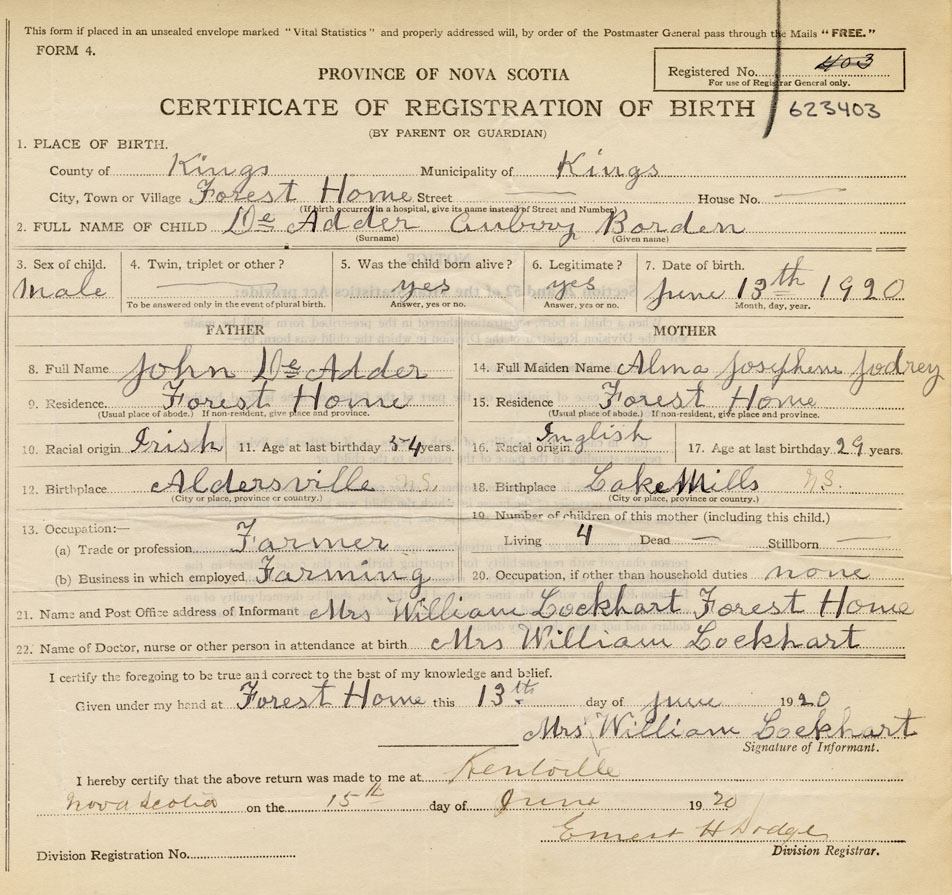 This form if placed in an unsealed envelope marked "Vital Statistics" and properly addressed will, by order of the Postmaster General pass through the Mails "FREE."
FORM 4.
PROVINCE OF NOVA SCOTIA
Registered No. 403
For use of Registrar General only.
CERTIFICATE OF REGISTRATION OF BIRTH 623403
(BY PARENT OR GUARDIAN)
1. PLACE OF BIRTH.
County of Kings Municipality of Kings
City, Town or Village Forest Home Street — House No. —
(If birth occurred in a hospital, give its name instead of Street and Number)
2. FULL NAME OF CHILD De Adder Aubury Borden
(Surname) (Given name)
3. Sex of child. 4. Twin, triplet or other? 5. Was the child born alive? 6. Legitimate? 7. Date of birth.
Male — yes yes June 13th 1920
To be answered only in the event of plural birth. Answer, yes or no. Answer, yes or no. Month, day, year.
FATHER MOTHER
8. Full Name John De Adder 14. Full Maiden Name Alma Josephine Jodrey
9. Residence. Forest Home 15. Residence Forest Home
(Usual place of abode.) If non-resident, give place and province. (Usual place of abode.) If non-resident, give place and province.
10. Racial origin Irish 11. Age at last birthday 54 years. 16. Racial origin Inglish 17. Age at last birthday 29 years.
12. Birthplace Aldersville N.S. 18. Birthplace Lake Mills N.S.
(City or place, province or country.) (City or place, province or country.)
13. Occupation:— 19. Number of children of this mother (including this child.)
(a) Trade or profession Farmer Living 4 Dead — Stillborn —
(b) Business in which employed Farming 20. Occupation, if other than household duties none
21. Name and Post Office address of Informant Mrs William Lockhart Forest Home
22. Name of Doctor, nurse or other person in attendance at birth Mrs William Lockhart
I certify the foregoing to be true and correct to the best of my knowledge and belief.
Given under my hand at Forest Home this 13th day of June 1920
Mrs William Lockhart
Signature of Informant.
I hereby certify that the above return was made to me at Kentville
Nova Scotia on the 15th day of June 1920
Ernest H Dodge
Division Registration No. Division Registrar.